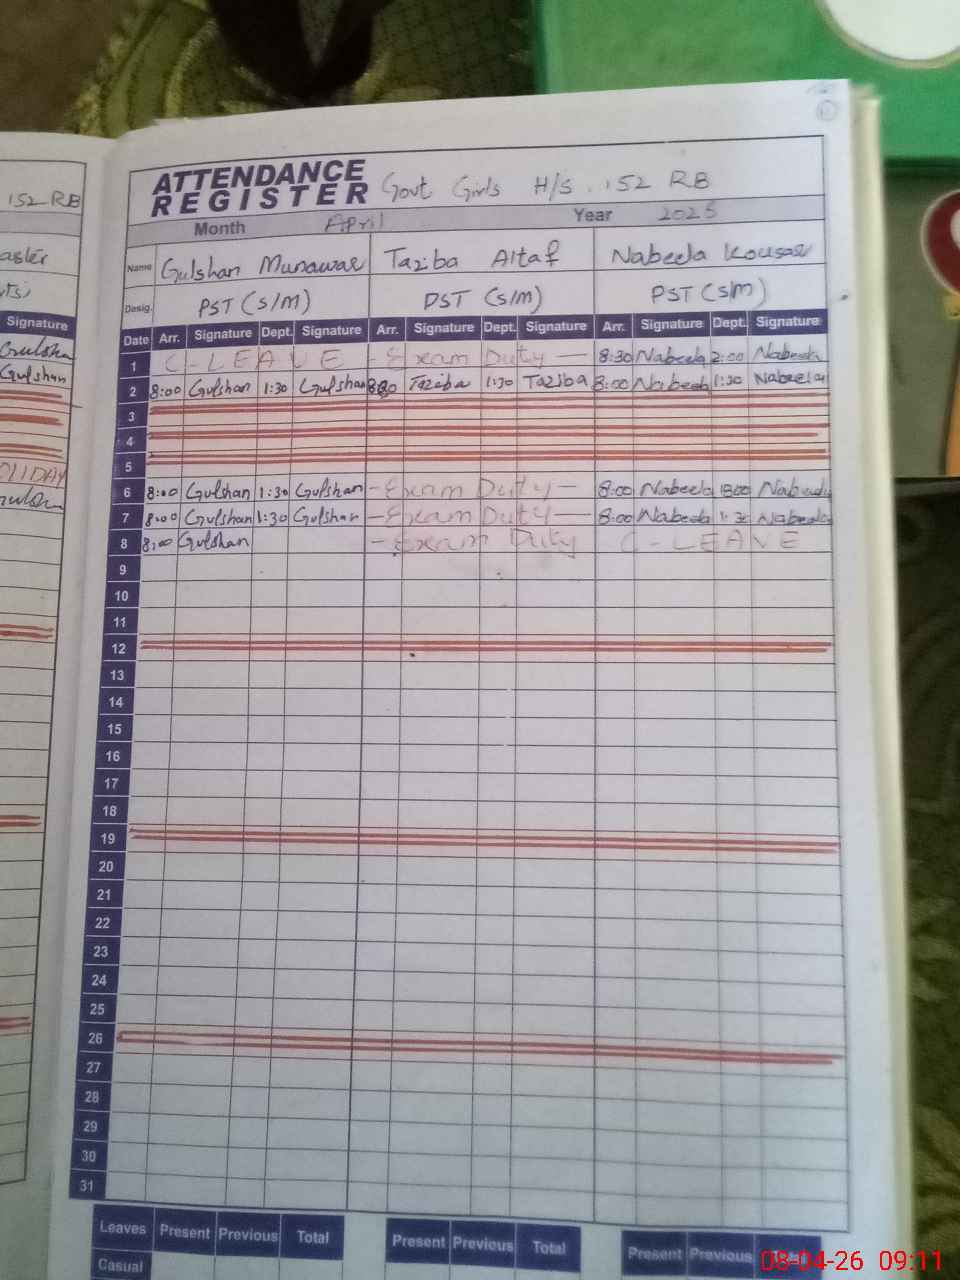 152 RB
Signature
Gulshan
ATTENDANCE
REGISTER Govt Girls H/S . 152 RB
Month April Year
Name Gulshan Munawar Taziba Altaf Nabeela Kousar
Desig. PST (S/M) DST (S/M) PST (S/M)
Date Arr. Signature Dept. Signature Arr. Signature Dept. Signature Arr. Signature Dept. Signature
1 C-LEAVE -Exam Duty- 8:30 Nabeela 2:00 Nabeela
2 8:00 Gulshan 1:30 Gulshan Taziba 1:30 Taziba 8:00 Nabeela 1:30 Nabeela
3
4
5
6 8:00 Gulshan 1:30 Gulshan -Exam Duty- 8:00 Nabeela Nabeela
7 8:00 Gulshan 1:30 Gulshan -Exam Duty- 8:00 Nabeela 1:30 Nabeela
8 8:00 Gulshan -Exam Duty C-LEAVE
9
10
11
12
13
14
15
16
17
18
19
20
21
22
23
24
25
26
27
28
29
30
31
Leaves Present Previous Total Present Previous Total Present Previous
Casual
08-04-26 09:11